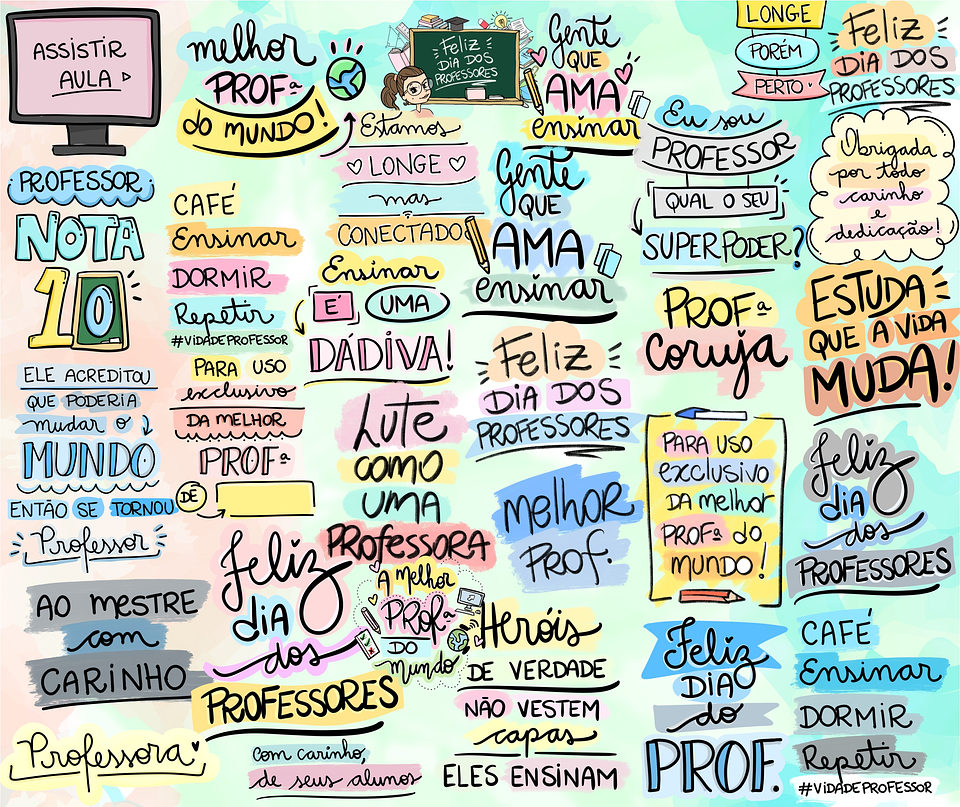 ASSISTIR
AULA
melhor
PROFª
do MUNDO!
FELIZ
DIA DOS
PROFESSORES
Gente
QUE
AMA
ensinar
LONGE
PORÉM
PERTO
FELIZ
DIA DOS
PROFESSORES
PROFESSOR
NOTA
10
CAFÉ
Ensinar
DORMIR
Repetir
#VIDADEPROFESSOR
Estamos
LONGE
mas
CONECTADO
Ensinar
É UMA
DÁDIVA!
Gente
QUE
AMA
ensinar
Eu sou
PROFESSOR
QUAL O SEU
SUPERPODER?
Obrigada
por todo
carinho
e
dedicação!
ELE ACREDITOU
QUE PODERIA
mudar o
MUNDO
ENTÃO SE TORNOU
Professor
PARA USO
exclusivo
DA MELHOR
PROFª
DÊ
Lute
COMO
UMA
PROFESSORA
FELIZ
DIA DOS
PROFESSORES
PROFª
coruja
ESTUDA
QUE A VIDA
MUDA!
AO MESTRE
com
CARINHO
Feliz
DIA
dos
PROFESSORES
A Melhor
PROFª
DO
mundo
MELHOR
PROF.
PARA USO
exclusivo
DA melhor
PROFª do
MUNDO!
Feliz
DIA
dos
PROFESSORES
Professora
com carinho,
de seus alunos
Heróis
DE VERDADE
NÃO VESTEM
capas
ELES ENSINAM
Feliz
DIA
do
PROF.
CAFÉ
Ensinar
DORMIR
Repetir
#VIDADEPROFESSOR